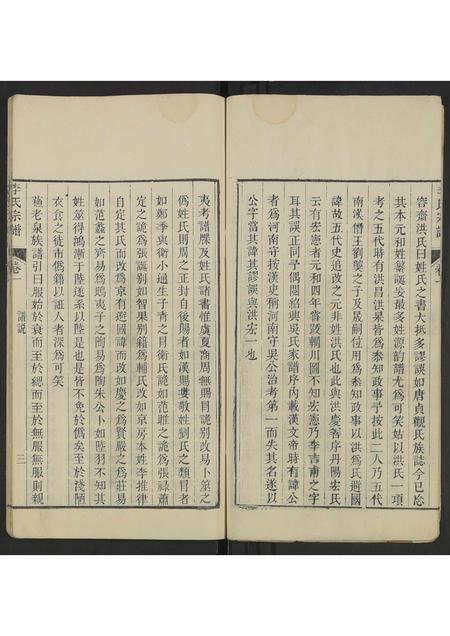 李氏宗譜 卷一
容齋洪氏曰姓氏之書大抵多謬誤如唐貞觀氏族誌今已忘
其本元和姓纂誕妄最多姓源韵譜尤為可笑姑以洪氏一項
考之五代時有洪昌洪杲皆為參知政事予按此二人乃五代
南漢僭王劉龑之子及晟嗣位用為參知政事以洪為氏避國
諱故五代史追改之元非姓洪氏也此與洪慶善序丹陽宏氏
云有宏憲者元和四年嘗跋輞川圖不知宏憲乃李吉甫之字
耳其誤正同予偶閱紹興吳氏家譜序內載漢文帝時有諱公
者為河南守按漢史稱河南守吳公治考第一而失其名遂以
公字當其諱其謬誤與洪宏一也
夷考譜牒及姓氏諸書惟虞夏商周無賜目詭别改易卜筮之
偽姓氏則周之正封自後賜者如漢賜婁敬姓劉氏之類目者
如鄭季與衛小通生子青之目衛氏詭如范雎之詭為張祿蕭
定之詭為張誕别如智果别籍為輔氏改如京房本姓李推律
自定其氏而改為京有避國諱而改如慶之為賀嚴之為莊易
如范蠡之齊易為鴟夷子之陶易為陶朱公卜如陸羽不知其
姓筮得鴻漸于陸遂系以陸是也是皆不免於偽矣至於淺陋
衣食之徒市偽籍以誑人者深為可笑
蘓老泉族譜引曰服始於衰而至於緦而至於無服無服則親
李氏宗譜 卷一 譜說 三